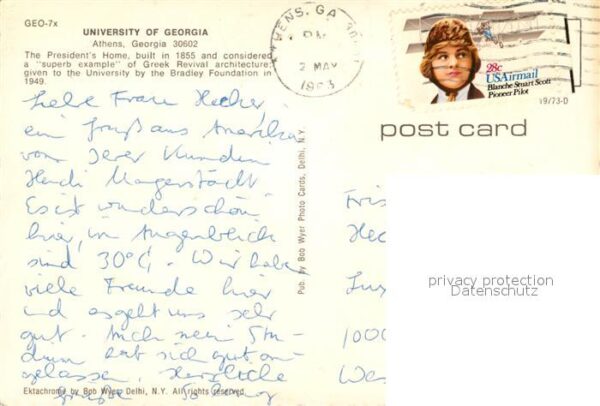 GEO-7x
UNIVERSITY OF GEORGIA
Athens, Georgia 30602
The President's Home, built in 1855 and considered
a "superb example" of Greek Revival architecture;
given to the University by the Bradley Foundation in
1949.
ATHENS, GA
PM
2 MAY
1983
28c
USAirmail
Blanche Stuart Scott
Pioneer Pilot
19/73-D
post card
Liebe Frau Hecher,
ein Gruß aus Amerika
von Ihrer Kundin
Heidi Magerstädt.
Es ist wunderschön
hier, im Augenblick
sind 30°C. Wir haben
viele Freunde hier
und es geht uns sehr
gut. Auch mein Stu-
dium läßt sich gut an-
gelassen, Herzliche
Grüße
Pub. by Bob Wyer Photo Cards, Delhi, N.Y.
Fris
Hec
Lux
1000
Wes
privacy protection
Datenschutz
Ektachrome by Bob Wyer Delhi, N.Y. All rights reserved.